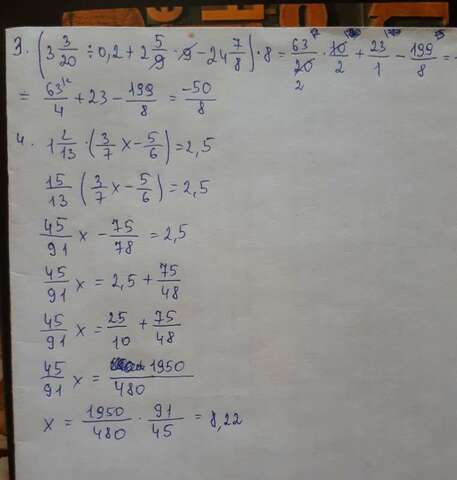 3. (3 3/20 ÷ 0,2 + 2 5/9 · 9 − 24 7/8) · 8 = 63/20 · 10/2 + 23/1 − 199/8 =
= 63/4 + 23 − 199/8 = −50/8
4. 1 2/13 · (3/7 x − 5/6) = 2,5
15/13 (3/7 x − 5/6) = 2,5
45/91 x − 75/78 = 2,5
45/91 x = 2,5 + 75/48
45/91 x = 25/10 + 75/48
45/91 x = 1950/480
x = 1950/480 · 91/45 = 8,22